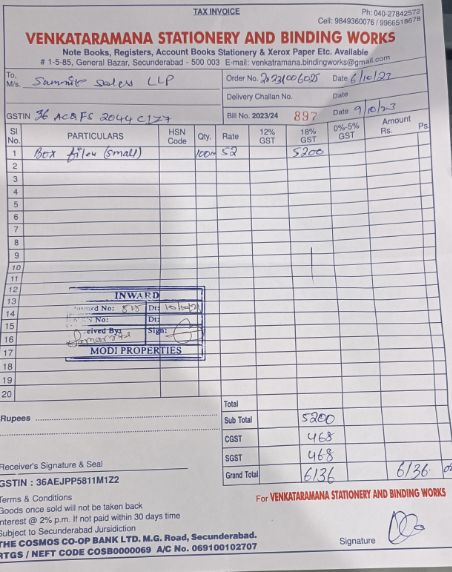 TAX INVOICE
Ph: 040-27842572
Cell: 9849360076 / 9966518678
VENKATARAMANA STATIONERY AND BINDING WORKS
Note Books, Registers, Account Books Stationery & Xerox Paper Etc. Available
# 1-5-85, General Bazar, Secunderabad - 500 003 E-mail: venkatramana.bindingworks@gmail.com
To,
M/s. Summit Sales LLP
Order No. 20231006025 Date 6/10/23
Delivery Challan No. Date
GSTIN 36 ACBFS 2044 C1Z7
Bill No. 2023/24 897 Date 9/10/23
Sl No. PARTICULARS HSN Code Qty. Rate 12% GST 18% GST 0%-5% GST Amount Rs. Ps
1 Box files (small) 100 52 5200
2
3
4
5
6
7
8
9
10
11
12
INWARD
13
No: Dt:
14
No: Dt:
15
ceived By: Sign:
16
MODI PROPERTIES
17
18
19
20
Total
Rupees
Sub Total 5200
CGST 468
SGST 468
Receiver's Signature & Seal
Grand Total 6136 6136
GSTIN : 36AEJPP5811M1Z2
Terms & Conditions
Goods once sold will not be taken back
nterest @ 2% p.m. If not paid within 30 days time
Subject to Secunderabad Jursidiction
THE COSMOS CO-OP BANK LTD. M.G. Road, Secunderabad.
RTGS / NEFT CODE COSB0000069 A/C No. 069100102707
For VENKATARAMANA STATIONERY AND BINDING WORKS
Signature